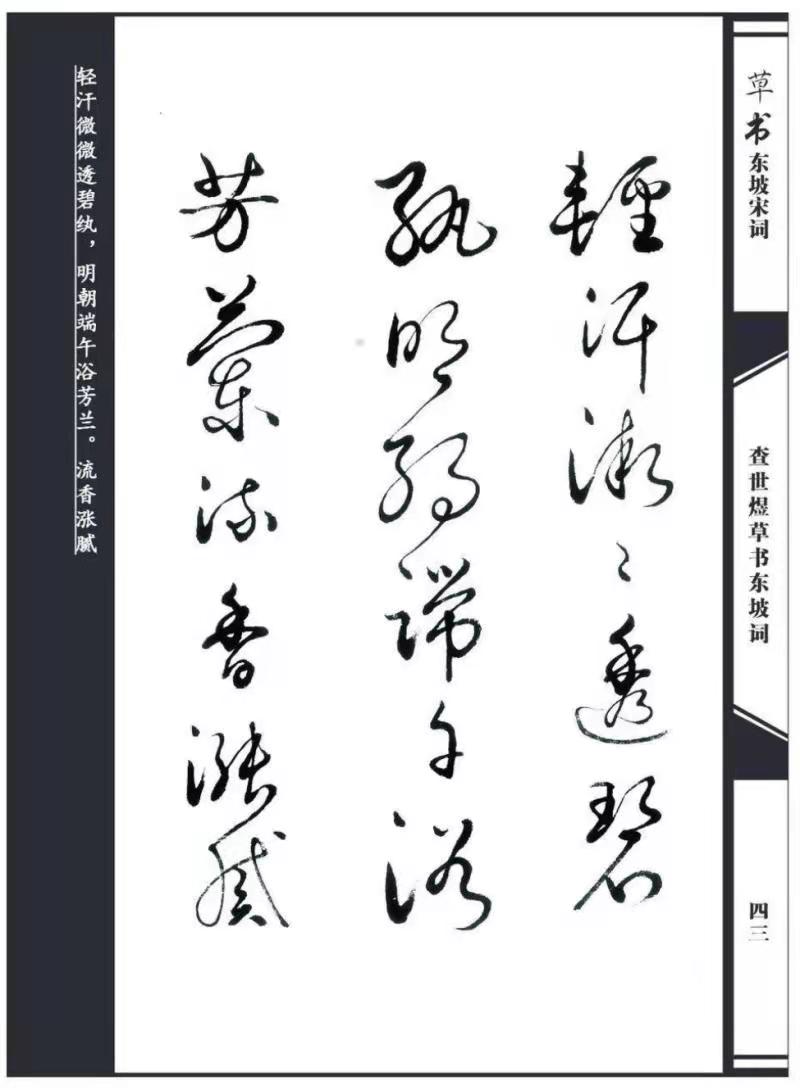 草书东坡宋词
查世煜草书东坡词
四三
輕汗微〻透碧
紈明朝端午浴
芳蘭流香漲膩
轻汗微微透碧纨，明朝端午浴芳兰。流香涨腻